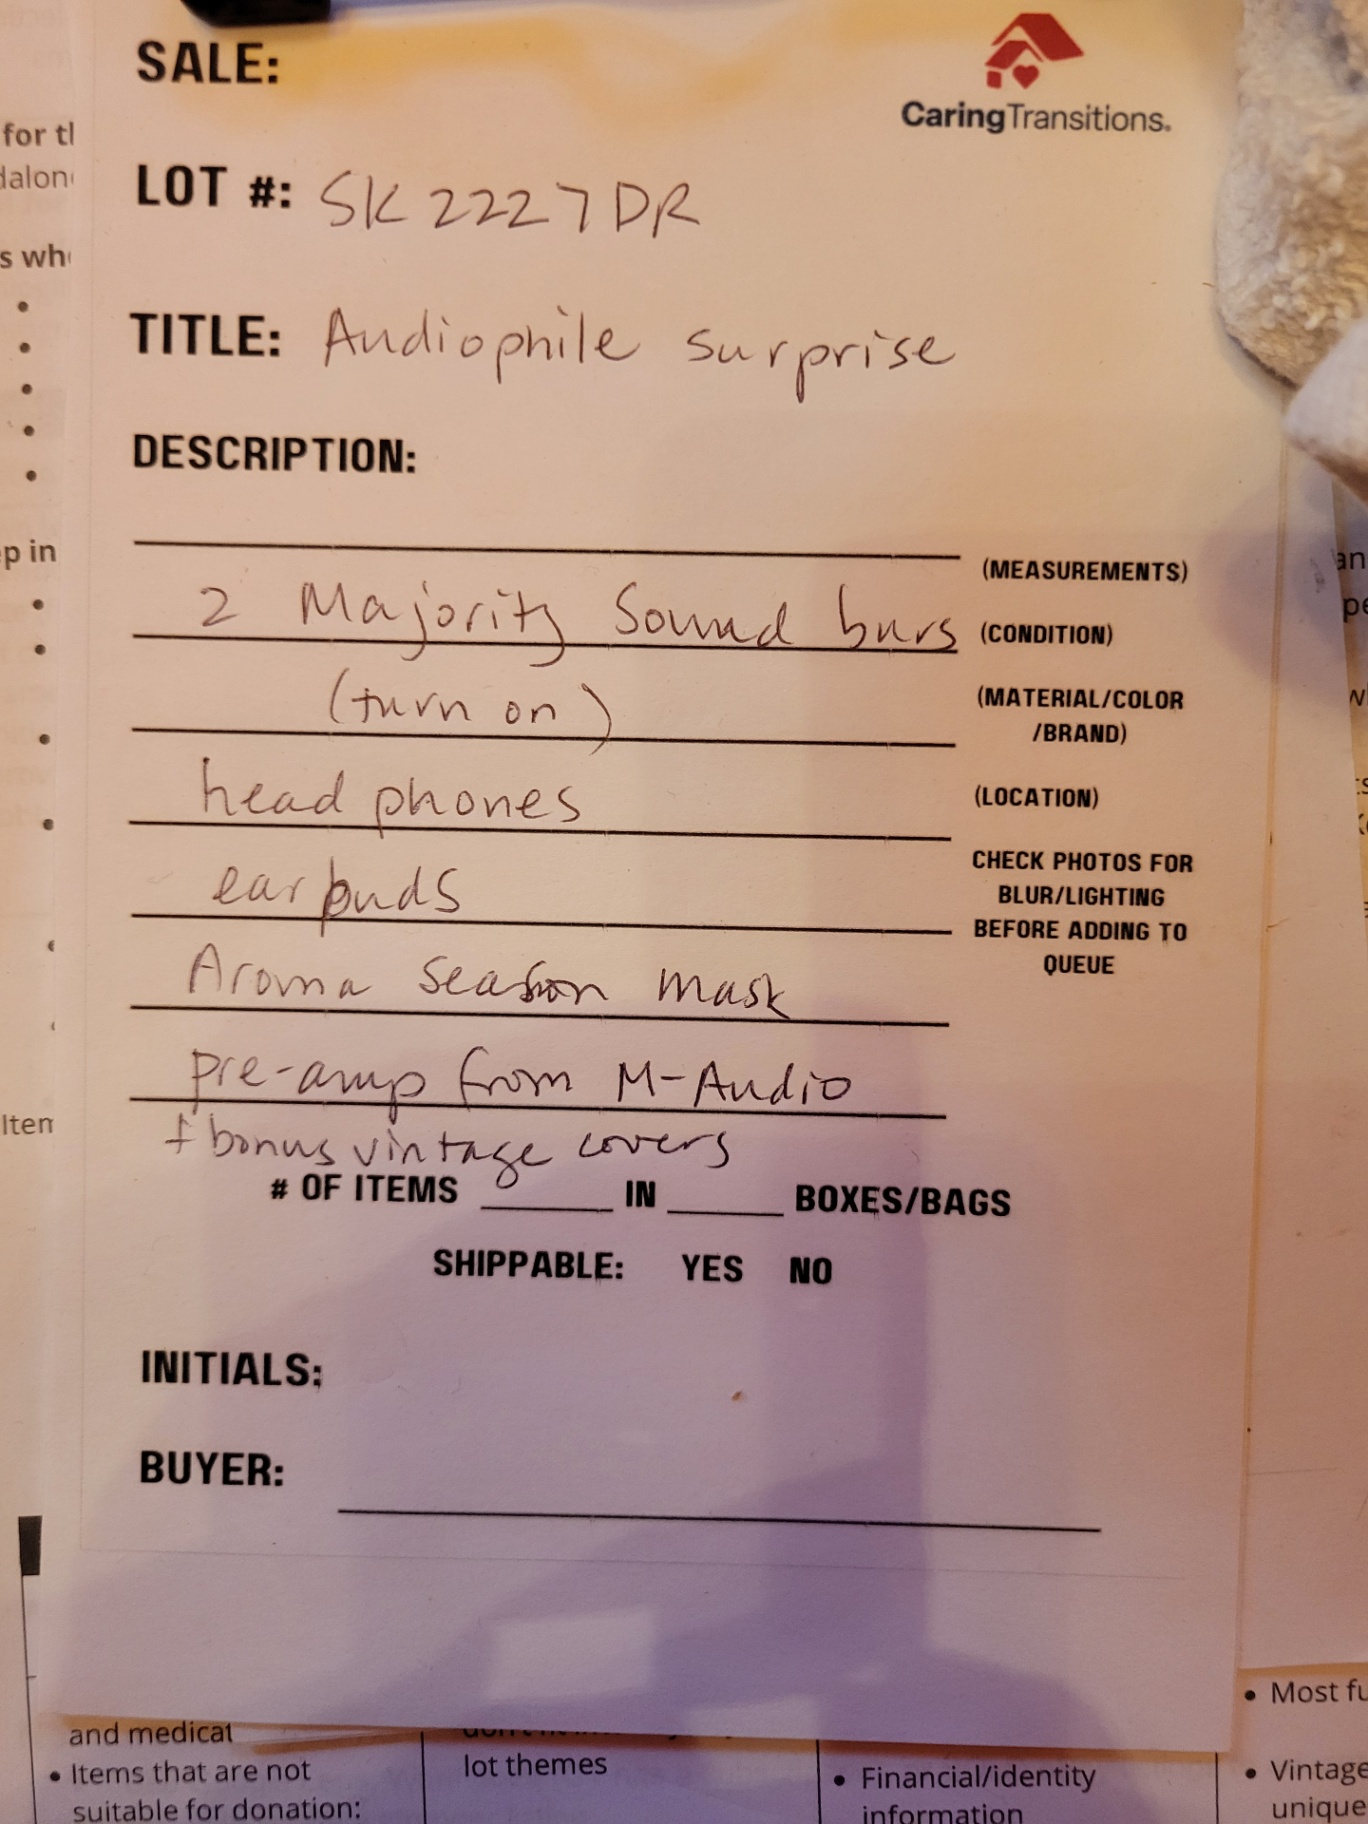 SALE:
CaringTransitions.
LOT #: SK2227DR
TITLE: Audiophile surprise
DESCRIPTION:
(MEASUREMENTS)
2 Majority Sound bars (CONDITION)
(turn on) (MATERIAL/COLOR
/BRAND)
head phones (LOCATION)
CHECK PHOTOS FOR
ear buds BLUR/LIGHTING
BEFORE ADDING TO
QUEUE
Aroma Season mask
pre-amp from M-Audio
+ bonus vintage covers
# OF ITEMS ____ IN ____ BOXES/BAGS
SHIPPABLE: YES NO
INITIALS:
BUYER:
for
s
p in
and medical
• Items that are not
suitable for donation:
lot themes
• Financial/identity
information
• Most
• Vintage
unique